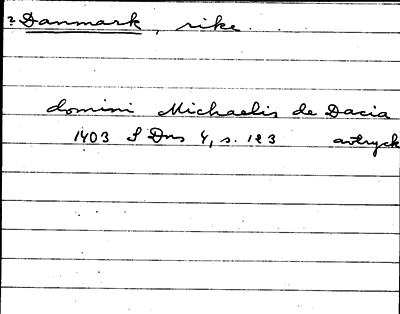 ? Danmark, rike
domini Michaelis de Dacia
1403 S Dns 4, s. 123 avtryck